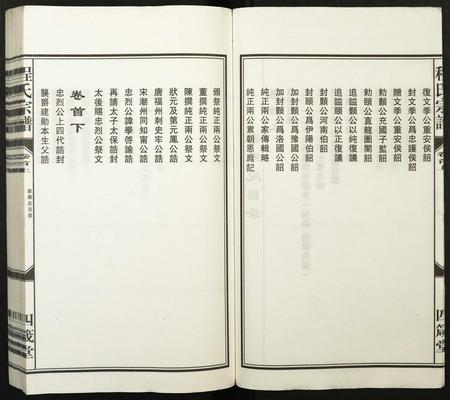 程氏宗譜
卷首
四箴堂
復文季公重安侯韶
封文季公爲忠護侯韶
贈文季公重安侯韶
勅顥公充國子監韶
勅頤公直龍圖閣韶
追謚顥公以純復議
追謚頤公以正復議
封顥公爲河南伯韶
封頤公爲伊陽伯韶
加封顥公爲豫國公韶
加封頤公爲洛國公韶
純正兩公家傳輯略
純正兩公累朝恩麾記
頒祭純正兩公祭文
董撰純正兩公祭文
陳撰純正兩公祭文
狀元及第元鳳公誥
唐福州刺史牢公誥
宋潮州同知甯公誥
忠烈公諱學啓諭誥
再請太子太保誥封
太後賜忠烈公祭文
卷首下
忠烈公上四代誥封
襲爵建勛本生父誥
程氏宗譜
卷首
四箴堂